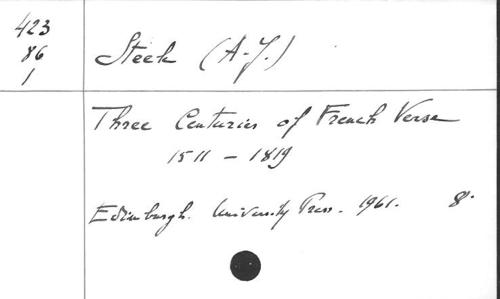 423
86
1
Steele (A.J.)
Three Centuries of French Verse
1511 - 1819
Edinburgh. University Press. 1961. 8°